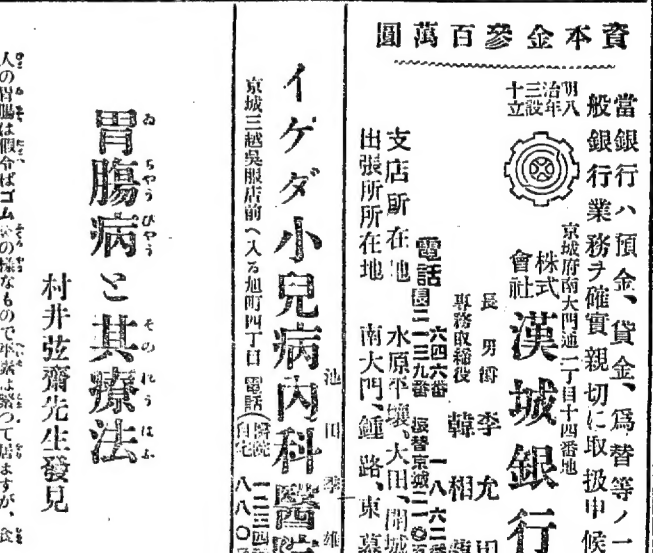 資本金參百萬圓
當銀行ハ預金、貸金、爲替等ノ一
般銀行業務ヲ確實親切に取扱申候
明治三十
八年設立
京城府南大門通二丁目十四番地
株式會社 漢城銀行
長 男爵 李 允 用
專務取締役 韓 相 龍
電話 六四六番 一八六二番
長二一三九番 振替京城二一〇
支店所在地 水原平壤、大田、開城
出張所所在地 南大門、鍾路、東幕
イケダ小兒病內科醫院
池田季雄
京城三越吳服店前へ入る旭町四丁目 電話
醫院 一二三四
自宅 八八〇
胃腸病と其療法
ゐちやうびやう そのれうはふ
村井弦齋先生發見
人の胃腸は假令ばゴム の様なもので平素は緊つて居ますが、食